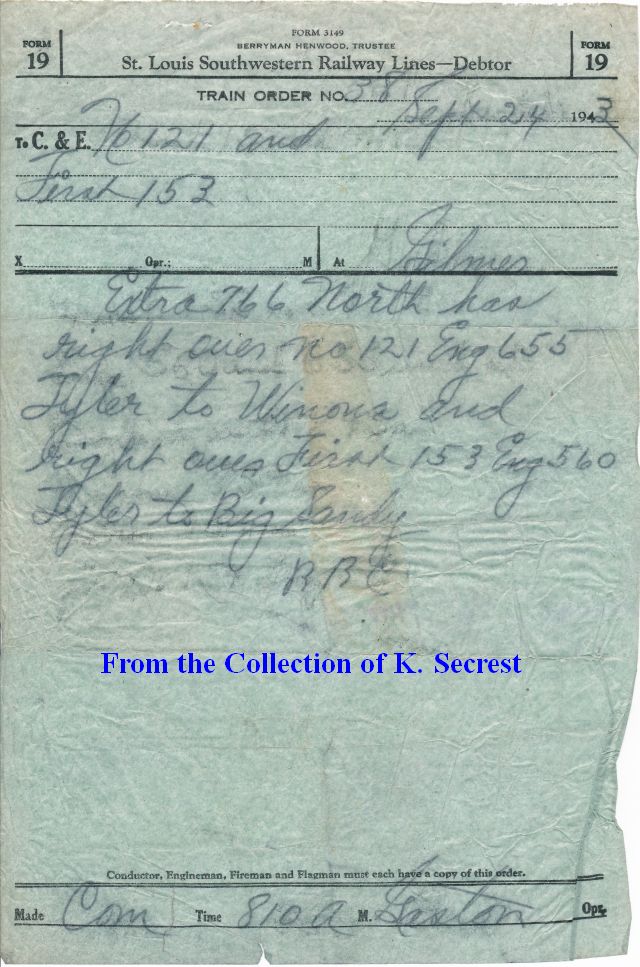 FORM 3149
BERRYMAN HENWOOD, TRUSTEE
FORM 19 St. Louis Southwestern Railway Lines—Debtor FORM 19
TRAIN ORDER NO. 38
Sept 24 1943
To C. & E. No 121 and
First 153
X Opr.: M At Gilmer
Extra 766 North has
right over no 121 Eng 655
Tyler to Winona and
right over First 153 Eng 560
Tyler to Big Sandy
From the Collection of K. Secrest
Conductor, Engineman, Fireman and Flagman must each have a copy of this order.
Made Com Time 810 A M. Gaston Opr.